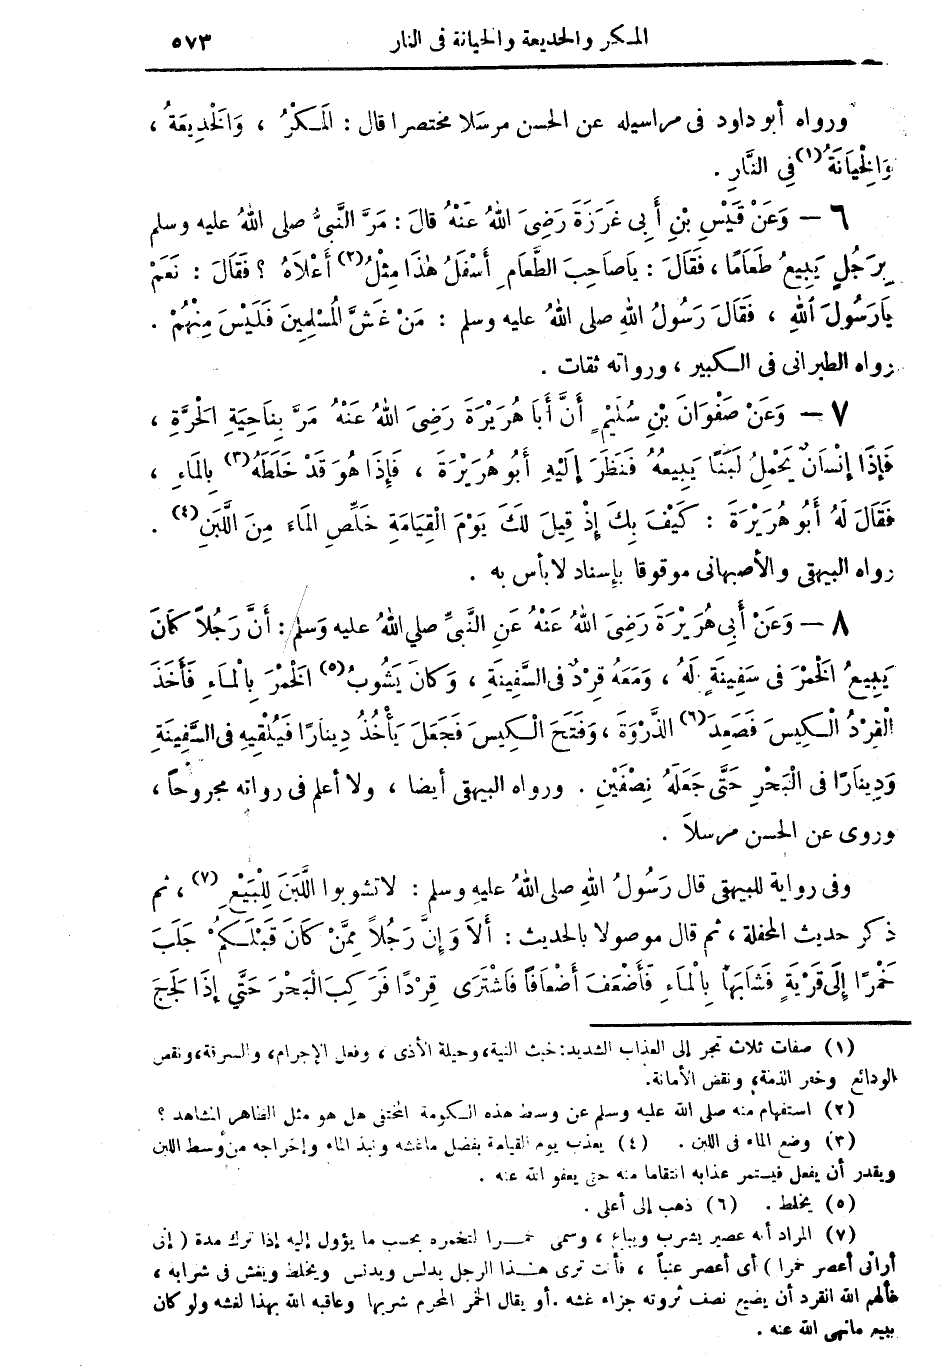 المكر والخديعة والخيانة فى النار ٥٧٣
ورواه أبو داود فى مراسيله عن الحسن مرسلا مختصرا قال : الْمَكْرُ ، وَالْخَدِيعَةُ ،
وَالْخِيَانَةُ (١) فِي النَّارِ .
٦ — وَعَنْ قَيْسِ بْنِ أَبِى غَرَزَةَ رَضِىَ اللهُ عَنْهُ قَالَ : مَرَّ النَّبِىُّ صلى اللهُ عليه وسلم
بِرَجُلٍ يَبِيعُ طَعَامًا ، فَقَالَ : يَاصَاحِبَ الطَّعَامِ أَسْفَلُ هٰذَا مِثْلُ (٢) أَعْلَاهُ ؟ فَقَالَ : نَعَمْ
يَارَسُولَ اللهِ ، فَقَالَ رَسُولُ اللهِ صلى اللهُ عليه وسلم : مَنْ غَشَّ الْمُسْلِمِينَ فَلَيْسَ مِنْهُمْ .
رواه الطبرانى فى الكبير ، ورواته ثقات .
٧ — وَعَنْ صَفْوَانَ بْنِ سُلَيْمٍ أَنَّ أَبَا هُرَيْرَةَ رَضِىَ اللهُ عَنْهُ مَرَّ بِنَاحِيَةِ الْحَرَّةِ ،
فَإِذَا إِنْسَانٌ يَحْمِلُ لَبَنًا يَبِيعُهُ فَنَظَرَ إِلَيْهِ أَبُو هُرَيْرَةَ ، فَإِذَا هُوَ قَدْ خَلَطَهُ (٣) بِالْمَاءِ ،
فَقَالَ لَهُ أَبُو هُرَيْرَةَ : كَيْفَ بِكَ إِذْ قِيلَ لَكَ يَوْمَ الْقِيَامَةِ خَلِّصِ الْمَاءَ مِنَ اللَّبَنِ (٤) .
رواه البيهقى والأصبهانى موقوفا بإسناد لابأس به .
٨ — وَعَنْ أَبِى هُرَيْرَةَ رَضِىَ اللهُ عَنْهُ عَنِ النَّبِىِّ صلي اللهُ عليه وَسلم : أَنَّ رَجُلاً كَانَ
يَبِيعُ الْخَمْرَ فِى سَفِينَةٍ لَهُ ، وَمَعَهُ قِرْدٌ فِى السَّفِينَةِ ، وَكَانَ يَشُوبُ (٥) الْخَمْرَ بِالْمَاءِ فَأَخَذَ
الْقِرْدُ الْكِيسَ فَصَعِدَ (٦) الذَّرْوَةَ ، وَفَتَحَ الْكِيسَ فَجَعَلَ يَأْخُذُ دِينَارًا فَيُلْقِيهِ فِى السَّفِينَةِ
وَدِينَارًا فِى الْبَحْرِ حَتَّى جَعَلَهُ نِصْفَيْنِ . ورواه البيهقى أيضا ، ولا أعلم فى رواته مجروحاً ،
وروى عن الحسن مرسلاَ .
وفى رواية للبيهقى قال رَسُولُ اللهِ صلى اللهُ عليهِ وسلم : لاتشوبوا اللَّبَنَ لِلْبَيْعِ (٧) ، ثم
ذكر حديث المحفلة ، ثم قال موصولا بالحديث : أَلاَ وَإِنَّ رَجُلاً مِمَّنْ كَانَ قَبْلَكُمْ جَلَبَ
خَمْرًا إِلَى قَرْيَةٍ فَشَابَهَا بِالْمَاءِ فَأَضْعَفَ أَضْعَافًا فَاشْتَرَى قِرْدًا فَرَكِبَ الْبَحْرَ حَتَّي إِذَا لَجَجَ
(١) صفات ثلاث تجر إلى العذاب الشديد : خبث النية ، وحيلة الأذى ، وفعل الإجرام ، والسرقة ، ونقص
الودائع وخفر الذمة ، ونقض الأمانة.
(٢) استفهام منه صلى الله عليه وسلم عن وسط هذه الكومة المختفى هل هو مثل الظاهر المشاهد ؟
(٣) وضع الماء فى اللبن . (٤) يعذب يوم القيامة بفصل ماغشه ونبذ الماء وإخراجه من وسط اللبن
ويقدر أن يفعل فيستمر عذابه انتقاما منه حتى يعفو الله عنه .
(٥) يخلط . (٦) ذهب إلى أعلى .
(٧) المراد أنه عصير يشرب ويباع ، وسمى خمرا لتخمره بحسب ما يؤول إليه إذا ترك مدة ( إنى
أرانى أعصر خمرا ) أى أعصر عنباً ، فأنت ترى هذا الرجل يدلس ويدنس ويخلط ويغش فى شرابه ،
فألهم الله القرد أن يضيع نصف ثروته جزاء غشه . أو يقال الخمر المحرم شربها وعاقبه الله بهذا لغشه ولو كان
ببيع مانهى الله عنه .